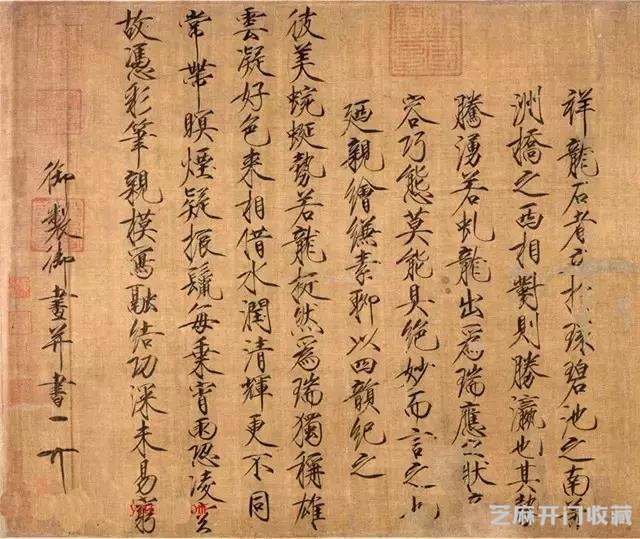 祥龍石者立於環碧池之南芳
洲橋之西相對則勝瀛也其勢
騰湧若虬龍出爲瑞應之狀奇
容巧態莫能具絕妙而言之也
廼親繪縑素聊以四韻紀之
彼美蜿蜒勢若龍挺然爲瑞獨稱雄
雲凝好色來相借水潤清輝更不同
常帶暝煙疑振鬣每乘宵雨恐凌空
故憑彩筆親模寫融結功深未易窮
御製御畫并書
芝麻开门收藏